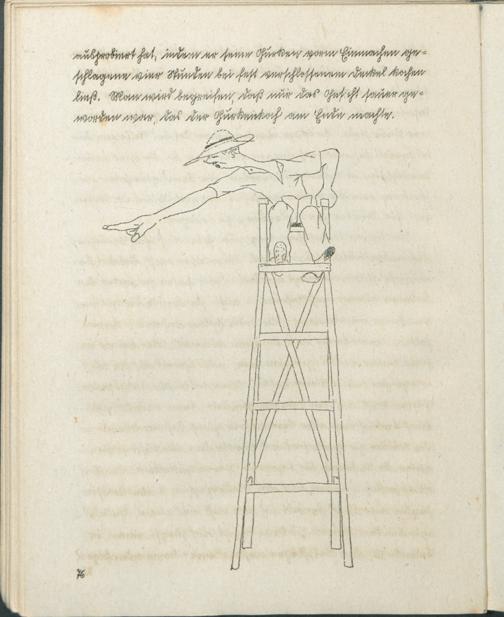 ausprobiert hat, indem er seine Gurken vorm Einmachen ge-
schlagene vier Stunden bei fest verschlossenem Deckel kochen
ließ. Man wird begreifen, daß nur das Gesicht sauer ge-
worden war, das der Gurkenkoch am Ende machte.
76